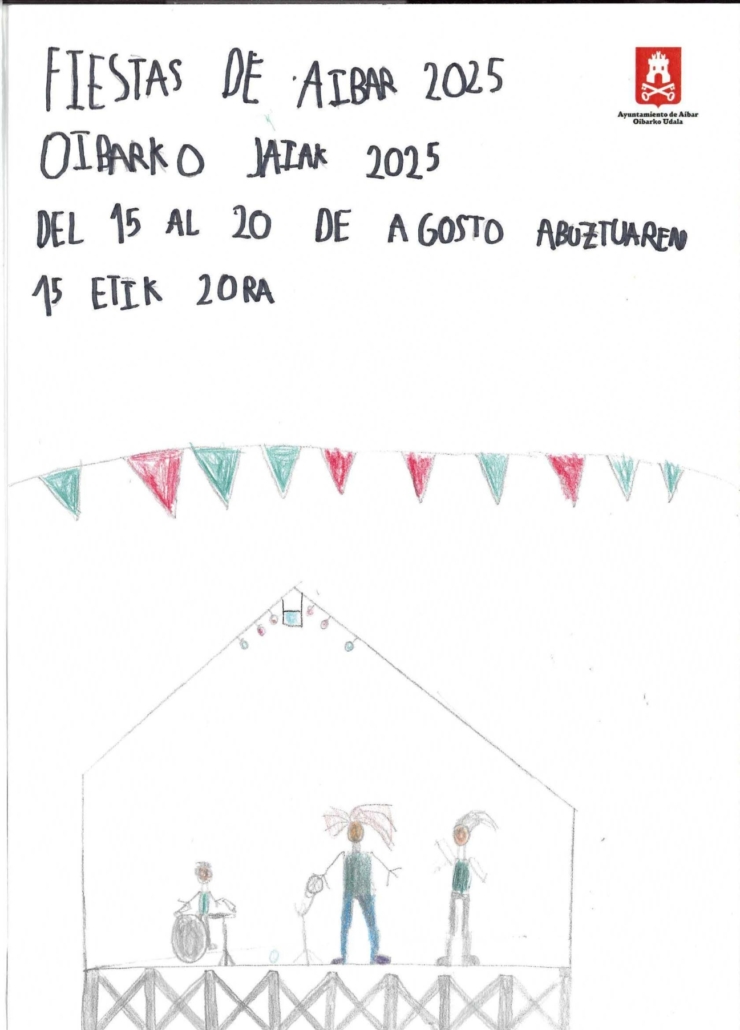 FIESTAS DE AIBAR 2025
OIBARKO JAIAK 2025
DEL 15 AL 20 DE AGOSTO ABUZTUAREN
15 ETIK 20RA
Ayuntamiento de Aibar
Oibarko Udala